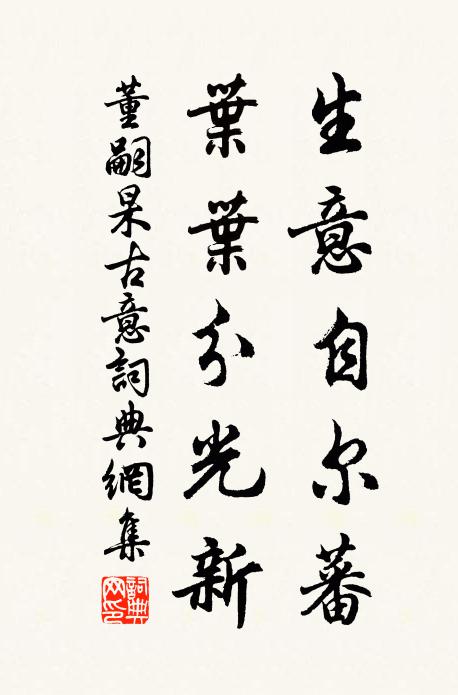 生意自尔蕃
葉葉分光新
董嗣杲古意詞典網集
詞典網印